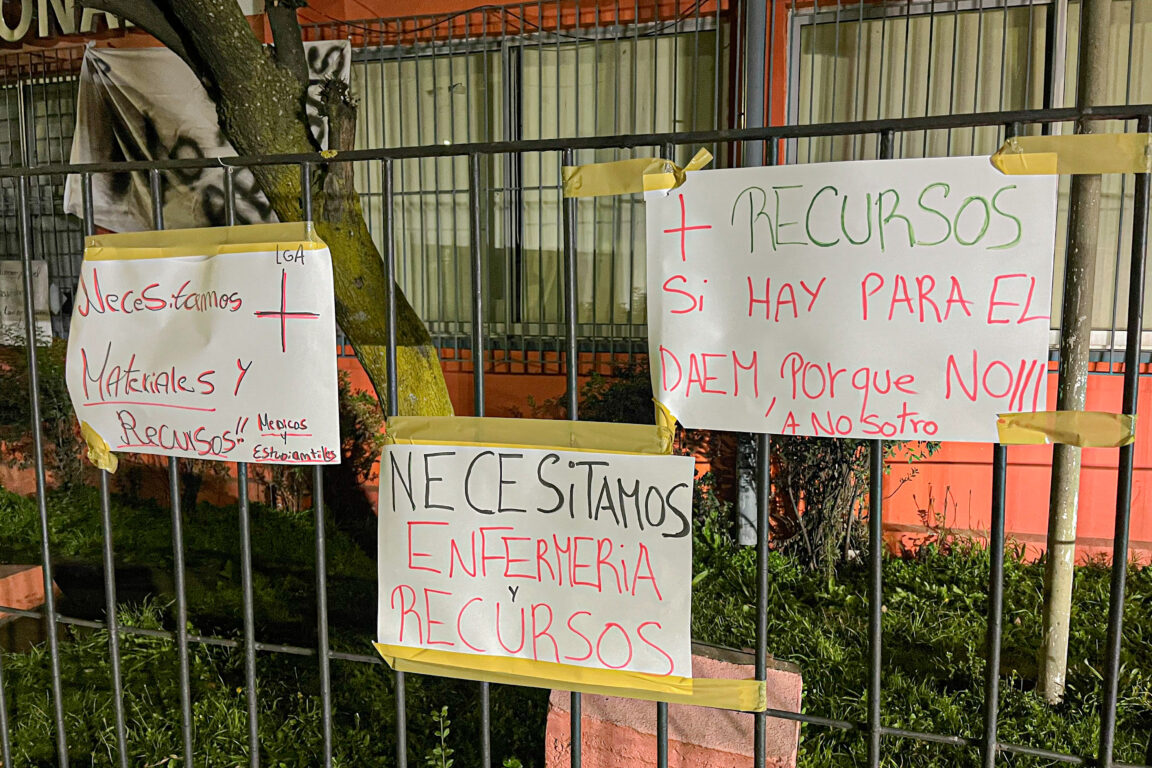 ONA
LGA
Necesitamos +
Materiales y
Recursos!! Medicos
y
Estudiantiles
NECESiTAMOS
ENFERMERiA
Y
RECURSOS
+ RECURSOS
Si HAY PARA EL
DAEM, Porque NO!!!!
A NOSotro